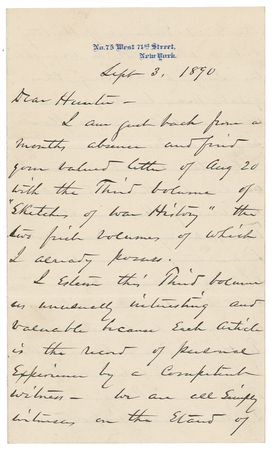 No. 75 West 71st Street,
New York.
Sept 3, 1890
Dear Hunter —
I am just back from a
months absence and find
your valued letter of Aug 20
with the Third volume of
"Sketches of War History" the
two first volumes of which
I already possess.
I Esteem this Third volume
as unusually interesting and
valuable because Each Article
is the record of personal
Experience by a Competent
witness — We are all Simply
witnesses on the Stand of